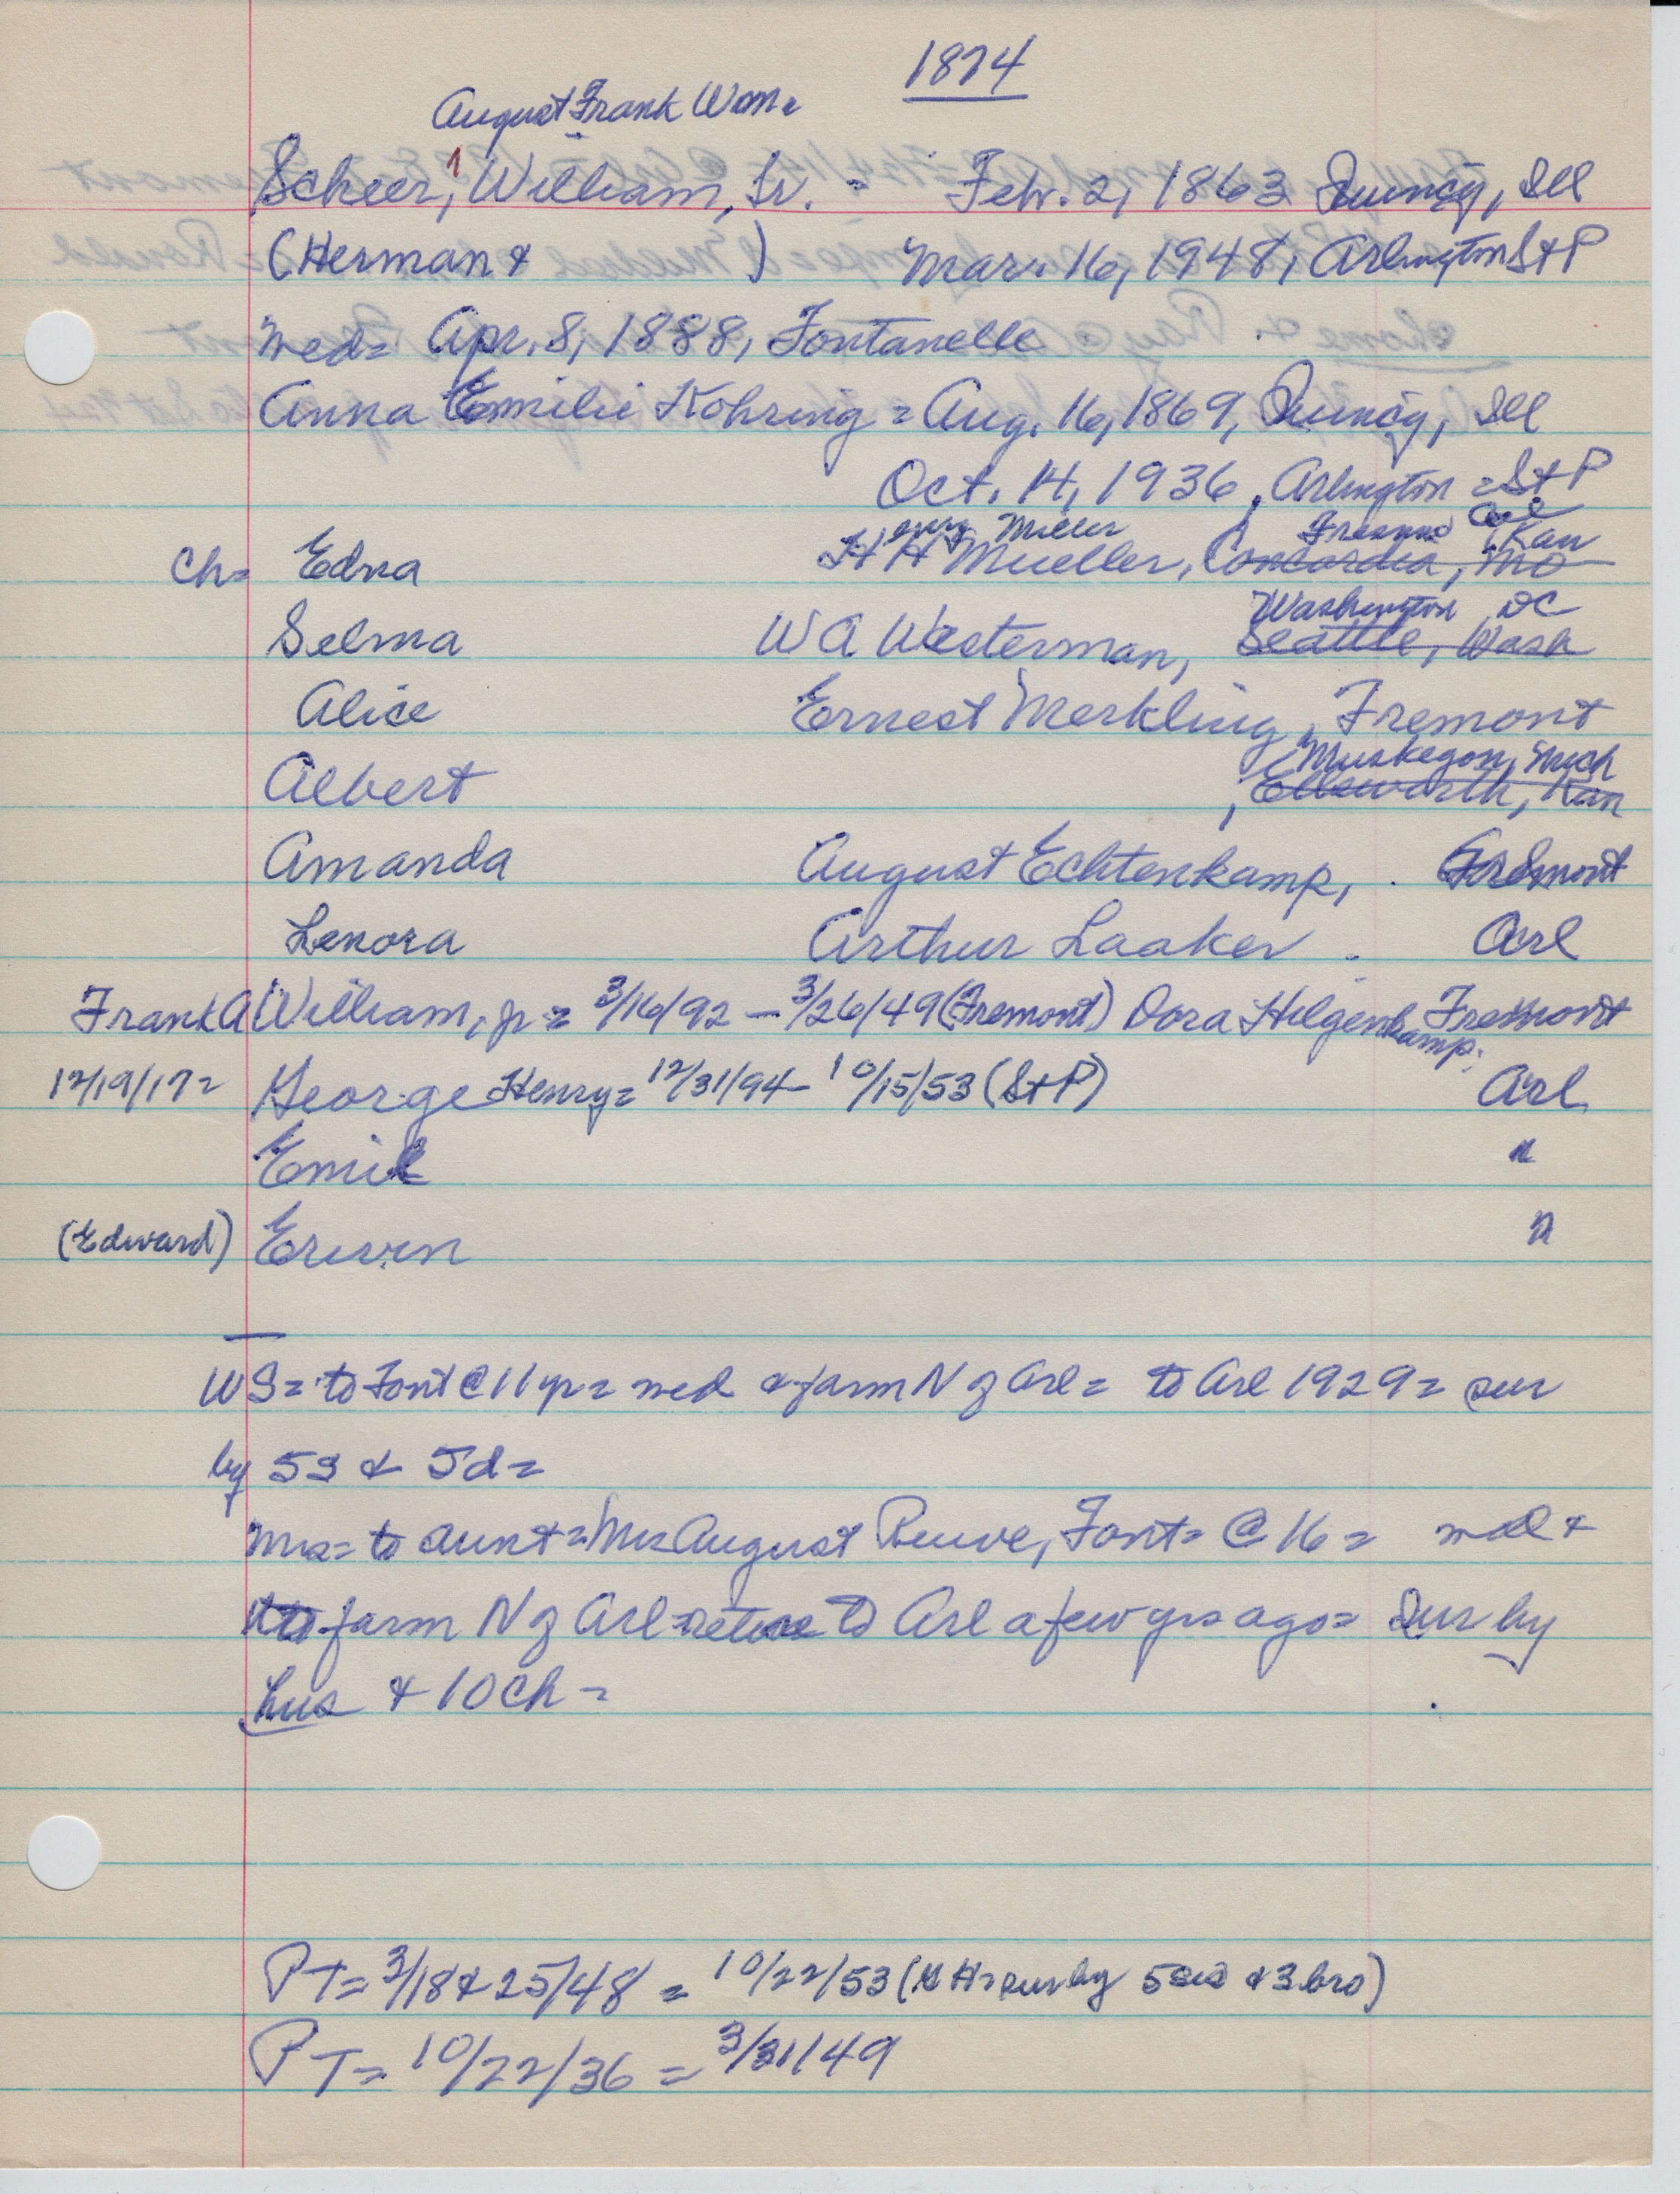 1874
August Frank Wm=
Scheer, William, Sr. = Feb. 2, 1863 Quincy, Ill
(Herman & ) Mar. 16, 1948, Arlington St P
med= Apr. 8, 1888, Fontanelle
Anna Emilie Kohring = Aug. 16, 1869, Quincy, Ill
Oct. 14, 1936, Arlington = St P
Miller Fresno Cal
Kan
Ch= Edna H H Mueller, Concordia, Mo
Washington DC
Selma W A Westerman, Seattle, Wash
Alice Ernest Merkling, Fremont
Muskegon, Mich
Albert , Ellsworth, Kan
Amanda August Echtenkamp, Fremont
Lenora Arthur Laaker Arl
Frank A William, jr = 3/16/92 - 3/26/49 (Fremont) Dora Hilgenkamp Fremont
12/19/17= George Henry= 12/31/94 - 10/15/53 (St P) Arl
Emil "
(Edward) Erwin "
WS= to Font @ 11 yr= med & farm N of Arl= to Arl 1929= sur
by 5S & 5d=
Mrs= to aunt= Mrs August Ruwe, Font= @ 16= md &
to farm N of Arl = retire to Arl a few yrs ago= Sur by
hus & 10 Ch =
PT= 3/18 & 25/48 = 10/22/53 (G H= sur by 5 sis & 3 bro)
PT= 10/22/36 = 3/31/49